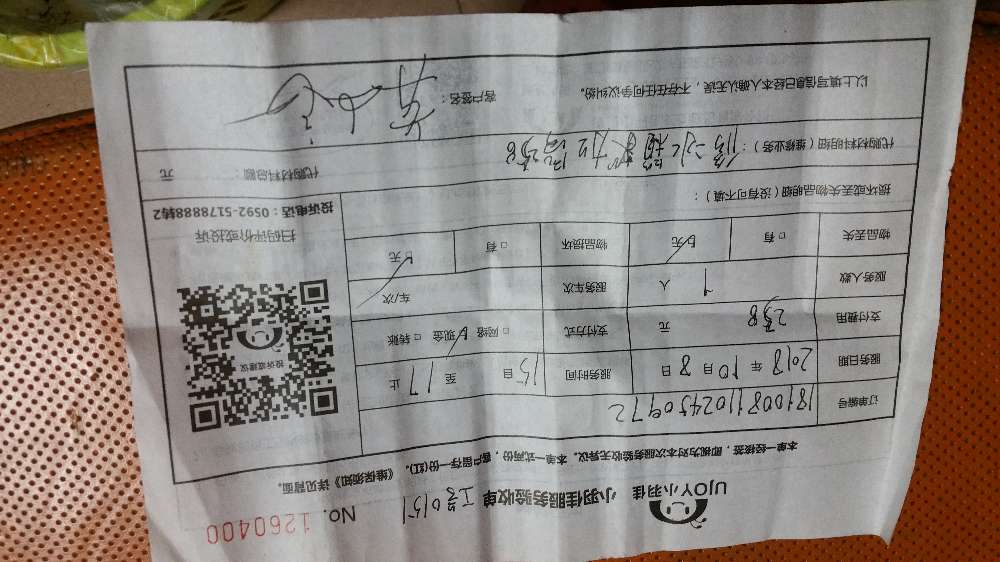 UJOY小羽佳 小羽佳服务验收单 工号0151 No. 1260400
本单一经核签，即视为对本次服务验收无异议。本单一式两份，客户留存一份(红)。《维保须知》详见背面。
订单编号 1810081102450972
服务日期 2018 年 10 月 8 日 服务时间 15 自 至 17 止
支付费用 238 元 支付方式 □网络 □现金 □转账
服务人数 1 人 服务车次 车/次
物品丢失 □有 □无 物品损坏 □有 □无
投诉或建议
扫码评价或投诉
投诉电话：0592-5178888转2
损坏或丢失物品明细（没有可不填）：
代购材料明细（维修业务）： 修 水箱 238
代购材料总额： 元
以上填写信息已经本人确认无误，不存在任何争议纠纷。
客户签名：